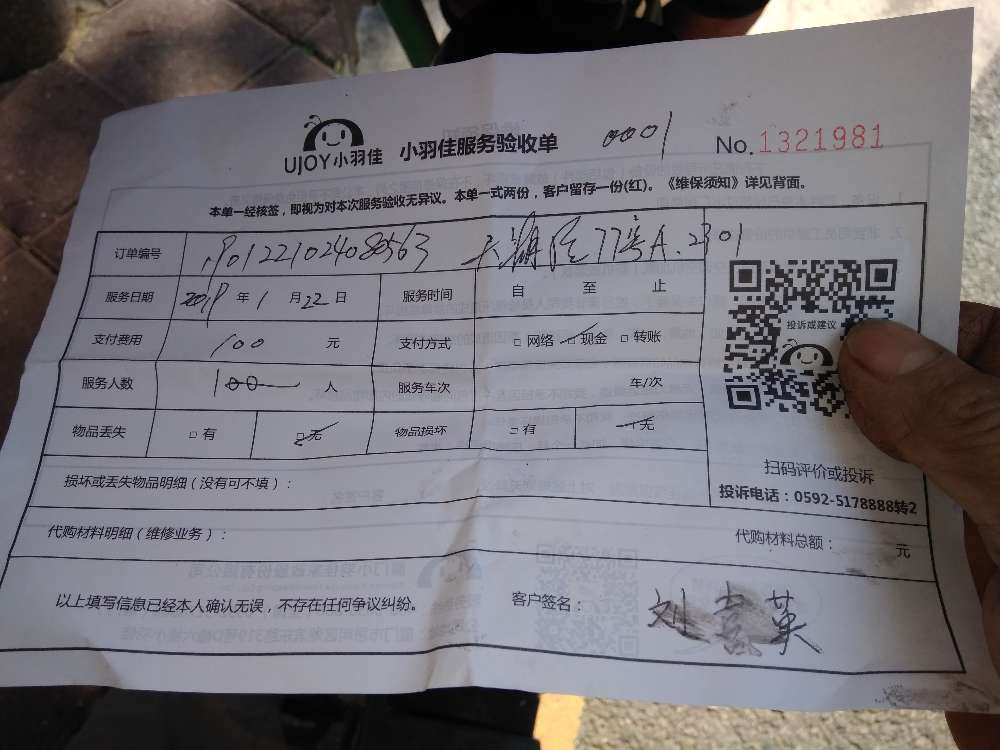 UJOY小羽佳 小羽佳服务验收单 0001 No.1321981
本单一经核签，即视为对本次服务验收无异议。本单一式两份，客户留存一份(红)。《维保须知》详见背面。
订单编号 190122102408563 77号A.2301
服务日期 2019 年 1 月 22 日 服务时间 自 至 止
支付费用 100 元 支付方式 □ 网络 □ 现金 □ 转账
服务人数 100 人 服务车次 车/次
物品丢失 □ 有 □ 无 物品损坏 □ 有 □ 无
损坏或丢失物品明细（没有可不填）：
代购材料明细（维修业务）： 代购材料总额： 元
以上填写信息已经本人确认无误，不存在任何争议纠纷。 客户签名： 刘喜英
投诉或建议
扫码评价或投诉
投诉电话：0592-5178888转2